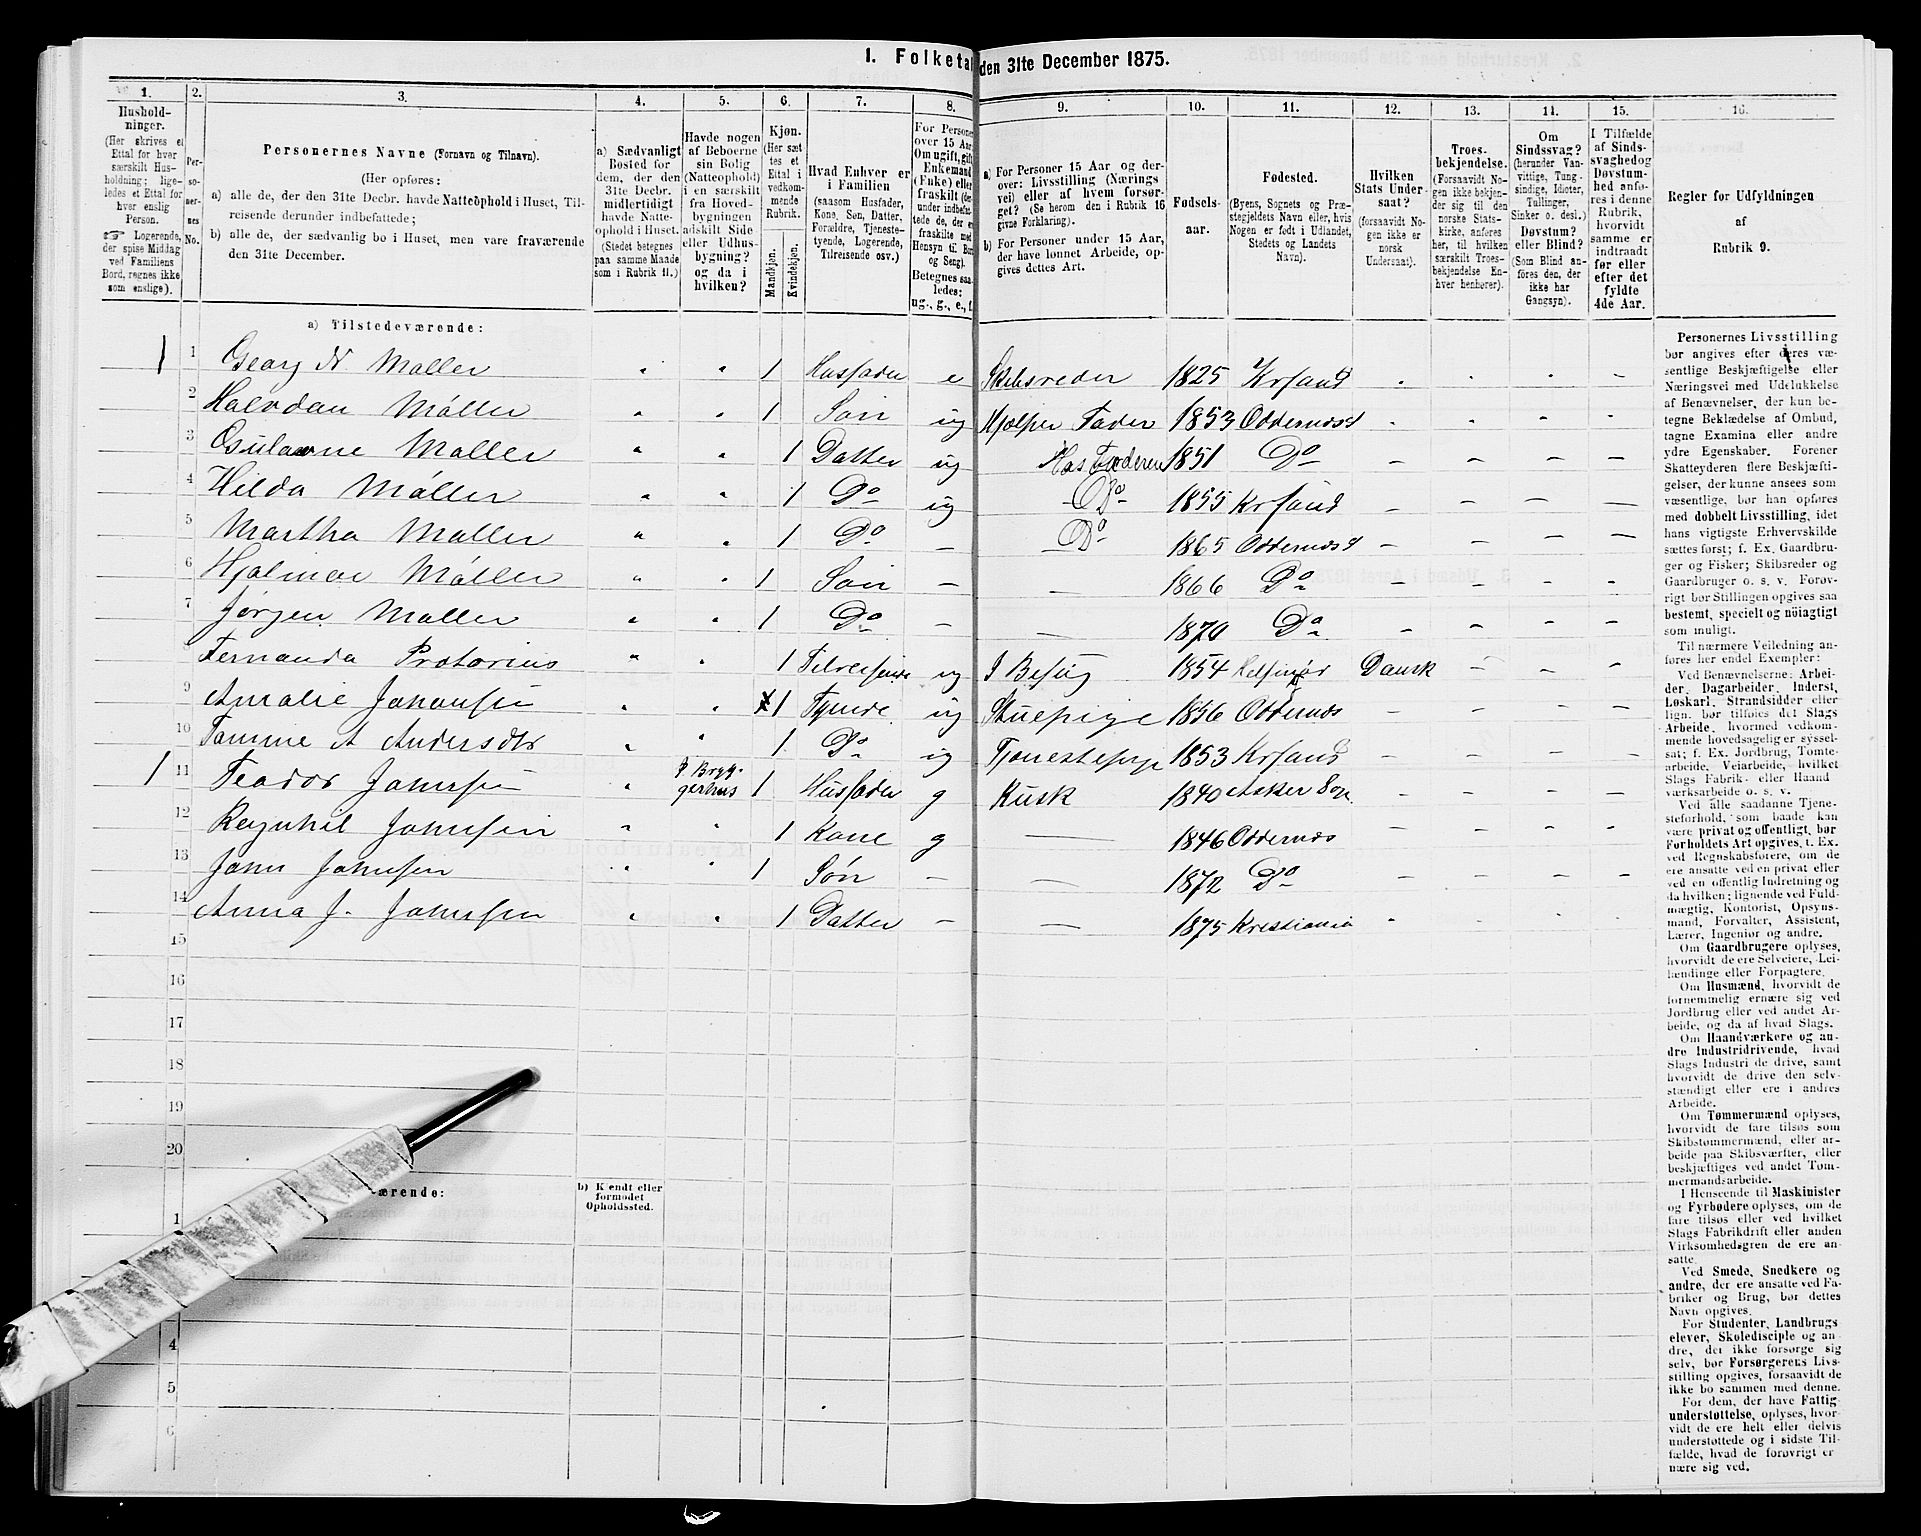 1. Folketal den 31te December 1875.
1. 2. 3. 4. 5. 6. 7. 8. 9. 10. 11. 12. 13. 14. 15. 16.
Hushold-
ninger.
(Her skrives et
Ettal for hver
særskilt Hus-
holdning; lige-
ledes et Ettal for
hver enslig
Person.
☞ Logerende,
der spise Middag
ved Familiens
Bord, regnes ikke
som enslige).
Per-
so-
ner-
nes
No.
Personernes Navne (Fornavn og Tilnavn).
(Her opføres:
a) alle de, der den 31te Decbr. havde Natteophold i Huset, Til-
reisende derunder indbefattede;
b) alle de, der sædvanlig bo i Huset, men vare fraværende
den 31te December.
a) Sædvanligt
Bosted for
dem, der den
31te Decbr.
midlertidigt
havde Natte-
ophold i Huset.
(Stedet betegnes
paa samme Maade
som i Rubrik 11.)
Havde nogen
af Beboerne
sin Bolig
(Natteophold)
i en særskilt
fra Hoved-
bygningen
adskilt Side
eller Udhus-
bygning?
og da i
hvilken?
Kjøn.
(Her sæt
tes et
Ettal i
vedkom-
mende
Rubrik.
Mandkjøn.
Kvindekjøn.
Hvad Enhver er
i Familien
(saasom Husfader,
Kone, Søn, Datter,
Forældre, Tjeneste-
tyende, Logerende,
Tilreisende osv.)
For Personer
over 15 Aar
Om ugift, gift,
Enkemand
(Enke) eller
fraskilt
Betegnes saa-
ledes:
ug., g., e., f.
a) For Personer 15 Aar og der-
over: Livsstilling (Nærings
vei) eller af hvem forsør-
get? (Se herom den i Rubrik 16
givne Forklaring).
b) For Personer under 15 Aar,
der have lønnet Arbeide, op-
gives dettes Art.
Fødsels-
aar.
Fødested.
(Byens, Sognets og Præ-
stegjeldets Navn eller, hvis
Nogen er født i Udlandet,
Stedets og Landets
Navn).
Hvilken
Stats Under-
saat?
(forsaavidt No-
gen ikke er
norsk
Undersaat).
Troes-
bekjendelse.
(Forsaavidt No-
gen ikke bekjen-
der sig til den
norske Stats-
kirke, anføres
her, til hvilken
særskilt Troes-
bekjendelse En-
hver henhører).
Om
Sindssvag?
(herunder Van-
vittige, Tung-
sindige, Idioter,
Tullinger,
Sinker o. desl.)
Døvstum?
eller Blind?
(Som Blind an-
føres den, der
ikke har
Gangsyn).
I Tilfælde
af Sinds-
svaghedog
Døvstum-
hed anfø-
res i denne
Rubrik,
hvorvidt
samme er
indtraadt
før eller
efter det
fyldte
4de Aar.
Regler for Udfyldningen
af
Rubrik 9.
a) Tilstedeværende:
1 1 Georg N Møller " " 1 Husfader e Skibsreder 1825 Krsand
2 Halvdan Møller " " 1 Søn ug Hjælper Fader 1853 Oddernæs
3 Møller " " 1 Datter ug Hos Faderen 1851 Do
4 Hilda Møller " " 1 Do ug Do 1855 Krsand
5 Martha Møller " " 1 Do – Do 1865 Oddernæs
6 Hjalmar Møller " " 1 Søn – – 1866 Do
7 Jørgen Møller " " 1 Do – – 1870 Do
Fernanda Prætorius " " 1 Tilreisende ug I Besøg 1854 Helsingør Dansk
9 Amalie Johansen " " 1 Tyende ug Stuepige 1856 Oddernæs
10 Tomine A Andersdtr " " 1 Do ug Tjenestepige 1853 Krsand
1 11 Teodor Johnsen " I Bryg-
gerhus 1 Husfader g Kusk 1840 Asker Sogn
12 Johnsen " " 1 Kone g – 1846 Oddernæs
13 John Johnsen " " 1 Søn – – 1872 Do
14 Anna J. Johnsen " " 1 Datter – – 1875 Kristiania
15
16
17
18
19
20
ærende:
b) Kjendt eller
formodet
Opholdssted.
1
4
5
6
Personernes Livsstilling
bør angives efter deres væ-
sentlige Beskjæftigelse eller
Næringsvei med Udelukkelse
af Benævnelser, der kun be-
tegne Beklædelse af Ombud,
tagne Examina eller andre
ydre Egenskaber. Forener
Skatteyderen flere Beskjæfti-
gelser, der kunne ansees som
væsentlige, bør han opføres
med dobbelt Livsstilling, idet
hans vigtigste Erhvervskilde
sættes først; f. Ex. Gaardbru-
ger og Fisker; Skibsreder og
Gaardbruger o. s. v. Forøv-
rigt bør Stillingen opgives saa
bestemt, specielt og nöiagtigt
som muligt.
Til nærmere Veiledning an-
føres her endel Exempler:
Ved Benævnelserne: Arbei-
der, Dagarbeider, Inderst,
Løskarl, Strandsidder eller
lign. bør tilføies det Slags
Arbeide, hvormed vedkom-
mende hovedsagelig er syssel-
sat; f. Ex. Jordbrug, Tomte-
arbeide, Veiarbeide, hvilket
Slags Fabrik- eller Haand
værksarbeide o. s. v.
Ved alle saadanne Tjene-
steforhold, som baade kan
være privat og offentligt, bør
Forholdets Art opgives, t. Ex.
ved Regnskabsførere, om de
ere ansatte ved en privat eller
ved en offentlig Indretning og
da hvilken; lignende ved Fuld-
mægtig, Kontorist, Opsyns-
mand, Forvalter, Assistent,
Lærer, Ingeniør og andre.
Om Gaardbrugere oplyses,
hvorvidt de ere Selveiere, Lei-
lændinge eller Forpagtere.
Om Husmænd, hvorvidt de
fornemmelig ernære sig ved
Jordbrug eller ved andet Ar-
beide, og da af hvad Slags.
Om Haandværkere og an-
dre Industridrivende, hvad
Slags Industri de drive, samt
hvorvidt de drive den selv-
stændigt eller ere i andres
Arbeide.
Om Tømmermænd oplyses,
hvorvidt de fare tilsøs som
Skibstømmermænd, eller ar-
beide paa Skibsværfter, eller
beskjæftiges ved andet Tøm-
mermandsarbeide.
I Henseende til Maskinister
og Fyrbødere oplyses, om de
fare tilsøs eller ved hvilket
Slags Fabrikdrift eller anden
Virksomhedsgren de ere an-
satte.
Ved Smede, Snedkere og
andre, der ere ansatte ved Fa-
briker og Brug, bør dettes
Navn opgives.
For Studenter, Landbrugs
elever, Skoledisciple og an-
dre, der ikke forsørge sig
selv, bør Forsørgerens Livs-
stilling opgives, forsaavidt de
ikke bo sammen med denne.
For dem, der have Fattig
understøttelse, oplyses, hvor-
vidt de ere helt eller delvis
understøttede og i sidste Til-
fælde, hvad de forøvrigt er
nære sig ved.